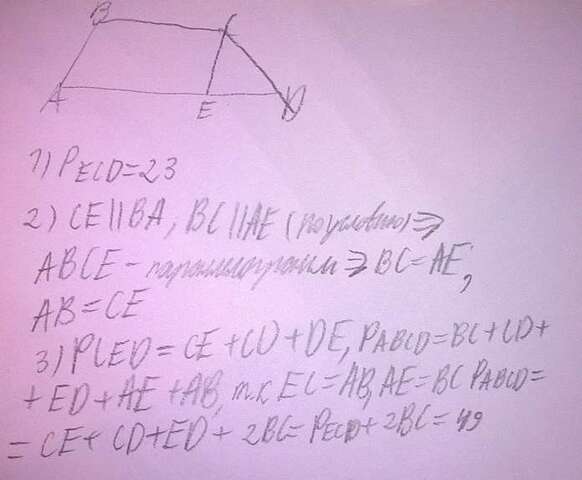 B C
A E D
1) P ECD = 23
2) CE || BA, BC || AE (по условию) ⇒
ABCE - параллелограмм ⇒ BC = AE;
AB = CE
3) PCED = CE + CD + DE, PABCD = BC + CD +
+ ED + AE + AB, т.к EC = AB, AE = BC PABCD =
= CE + CD + ED + 2BC = PECD + 2BC = 49